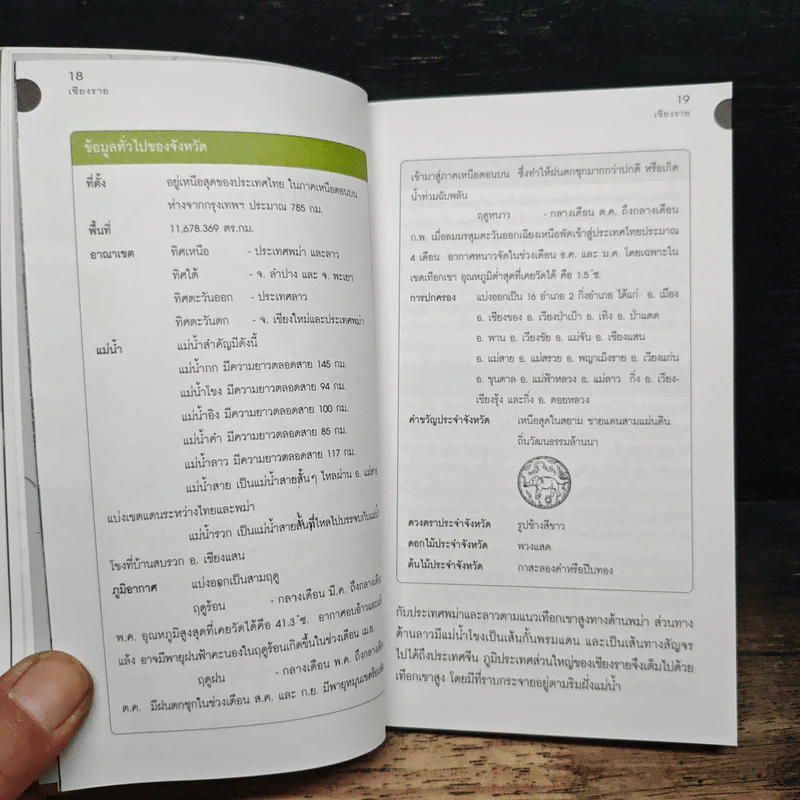 18
เชียงราย
ข้อมูลทั่วไปของจังหวัด
ที่ตั้ง อยู่เหนือสุดของประเทศไทย ในภาคเหนือตอนบน
ห่างจากกรุงเทพฯ ประมาณ 785 กม.
พื้นที่ 11,678.369 ตร.กม.
อาณาเขต ทิศเหนือ - ประเทศพม่า และลาว
ทิศใต้ - จ. ลำปาง และ จ. พะเยา
ทิศตะวันออก - ประเทศลาว
ทิศตะวันตก - จ. เชียงใหม่และประเทศพม่า
แม่น้ำ แม่น้ำสำคัญมีดังนี้
แม่น้ำกก มีความยาวตลอดสาย 145 กม.
แม่น้ำโขง มีความยาวตลอดสาย 94 กม.
แม่น้ำอิง มีความยาวตลอดสาย 100 กม.
แม่น้ำคำ มีความยาวตลอดสาย 85 กม.
แม่น้ำลาว มีความยาวตลอดสาย 117 กม.
แม่น้ำสาย เป็นแม่น้ำสายสั้นๆ ไหลผ่าน อ. แม่สาย
แบ่งเขตแดนระหว่างไทยและพม่า
แม่น้ำรวก เป็นแม่น้ำสายสั้นที่ไหลไปบรรจบกับแม่น้ำ
โขงที่บ้านสบรวก อ. เชียงแสน
ภูมิอากาศ แบ่งออกเป็นสามฤดู
ฤดูร้อน - กลางเดือน มี.ค. ถึงกลางเดือน
พ.ค. อุณหภูมิสูงสุดที่เคยวัดได้คือ 41.3 ํซ. อากาศอบอ้าวและแห้ง
แล้ง อาจมีพายุฝนฟ้าคะนองในฤดูร้อนเกิดขึ้นในช่วงเดือน เม.ย.
ฤดูฝน - กลางเดือน พ.ค. ถึงกลางเดือน
ต.ค. มีฝนตกชุกในช่วงเดือน ส.ค. และ ก.ย. มีพายุหมุนเขตร้อนพัด
19
เชียงราย
เข้ามาสู่ภาคเหนือตอนบน ซึ่งทำให้ฝนตกชุกมากกว่าปกติ หรือเกิด
น้ำท่วมฉับพลัน
ฤดูหนาว - กลางเดือน ต.ค. ถึงกลางเดือน
ก.พ. เมื่อลมมรสุมตะวันออกเฉียงเหนือพัดเข้าสู่ประเทศไทยประมาณ
4 เดือน อากาศหนาวจัดในช่วงเดือน ธ.ค. และ ม.ค. โดยเฉพาะใน
เขตเทือกเขา อุณหภูมิต่ำสุดที่เคยวัดได้ คือ 1.5 ํซ.
การปกครอง แบ่งออกเป็น 16 อำเภอ 2 กิ่งอำเภอ ได้แก่ อ. เมือง
อ. เชียงของ อ. เวียงป่าเป้า อ. เทิง อ. ป่าแดด
อ. พาน อ. เวียงชัย อ. แม่จัน อ. เชียงแสน
อ. แม่สาย อ. แม่สรวย อ. พญาเม็งราย อ. เวียงแก่น
อ. ขุนตาล อ. แม่ฟ้าหลวง อ. แม่ลาว กิ่ง อ. เวียง-
เชียงรุ้ง และกิ่ง อ. ดอยหลวง
คำขวัญประจำจังหวัด เหนือสุดในสยาม ชายแดนสามแผ่นดิน
ถิ่นวัฒนธรรมล้านนา
ดวงตราประจำจังหวัด รูปช้างสีขาว
ดอกไม้ประจำจังหวัด พวงแสด
ต้นไม้ประจำจังหวัด กาสะลองคำหรือปีบทอง
กับประเทศพม่าและลาวตามแนวเทือกเขาสูงทางด้านพม่า ส่วนทาง
ด้านลาวมีแม่น้ำโขงเป็นเส้นกั้นพรมแดน และเป็นเส้นทางสัญจร
ไปได้ถึงประเทศจีน ภูมิประเทศส่วนใหญ่ของเชียงรายจึงเต็มไปด้วย
เทือกเขาสูง โดยมีที่ราบกระจายอยู่ตามริมฝั่งแม่น้ำ